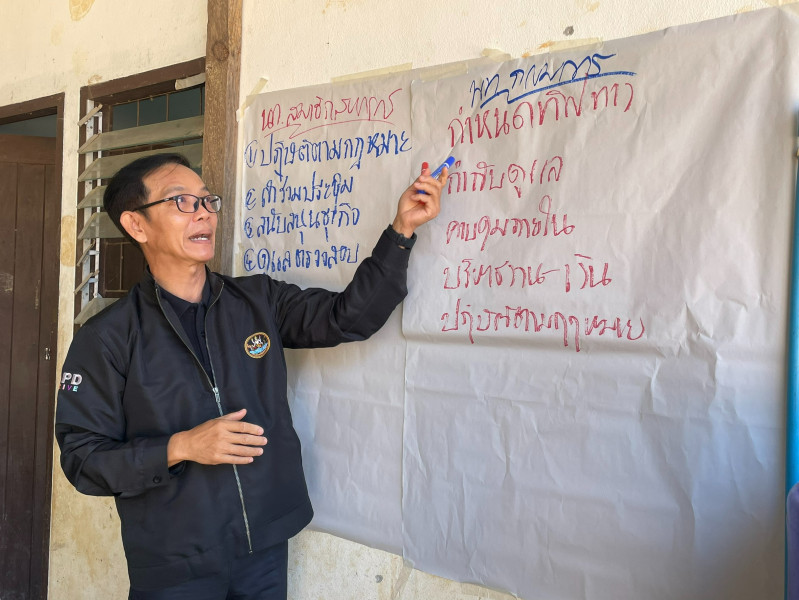 นท. สมาชิกสหกรณ์
① ปฏิบัติตามกฎหมาย
② เข้าร่วมประชุม
③ สนับสนุนธุรกิจ
④ ดูแลตรวจสอบ
นท. กรรมการ
กำหนดทิศทาง
กำกับดูแล
ควบคุมภายใน
บริหารงาน-เงิน
ปฏิบัติตามกฎหมาย
PD
IVE